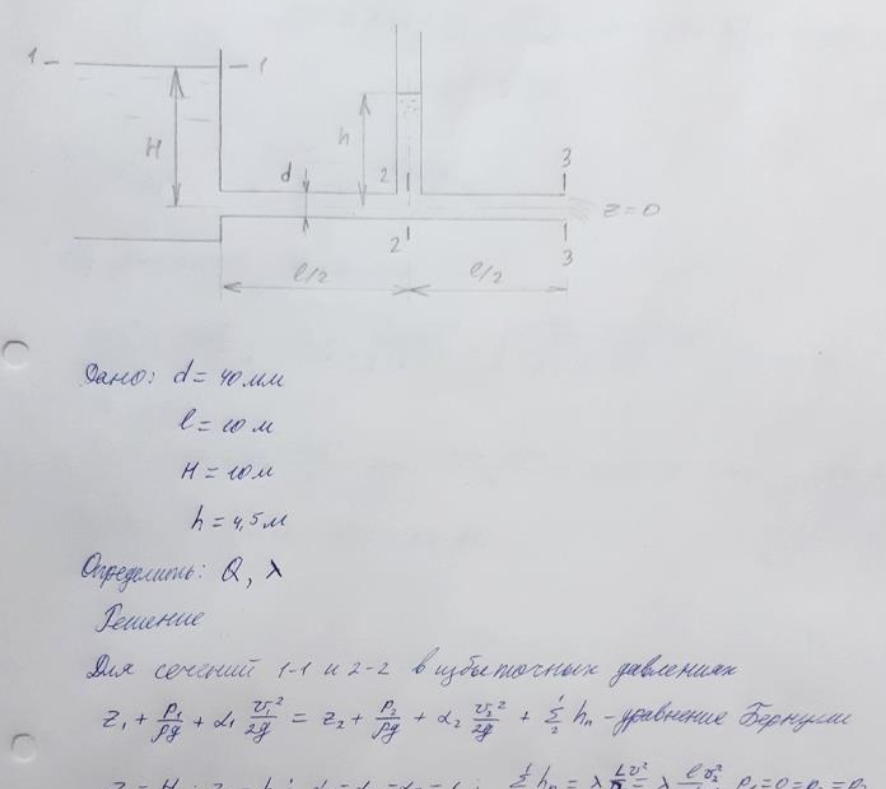 1 – – 1
H
h
d
2
3
z=0
2
3
l/2 l/2
Дано: d= 40 мм
l= 10 м
H = 10 м
h = 4,5 м
Определить: Q, λ
Решение
Для сечений 1-1 и 2-2 в избыточных давлениях
z₁ + p₁/ρg + α₁ v₁²/2g = z₂ + p₂/ρg + α₂ v₂²/2g + Σ hп - уравнение Бернулли